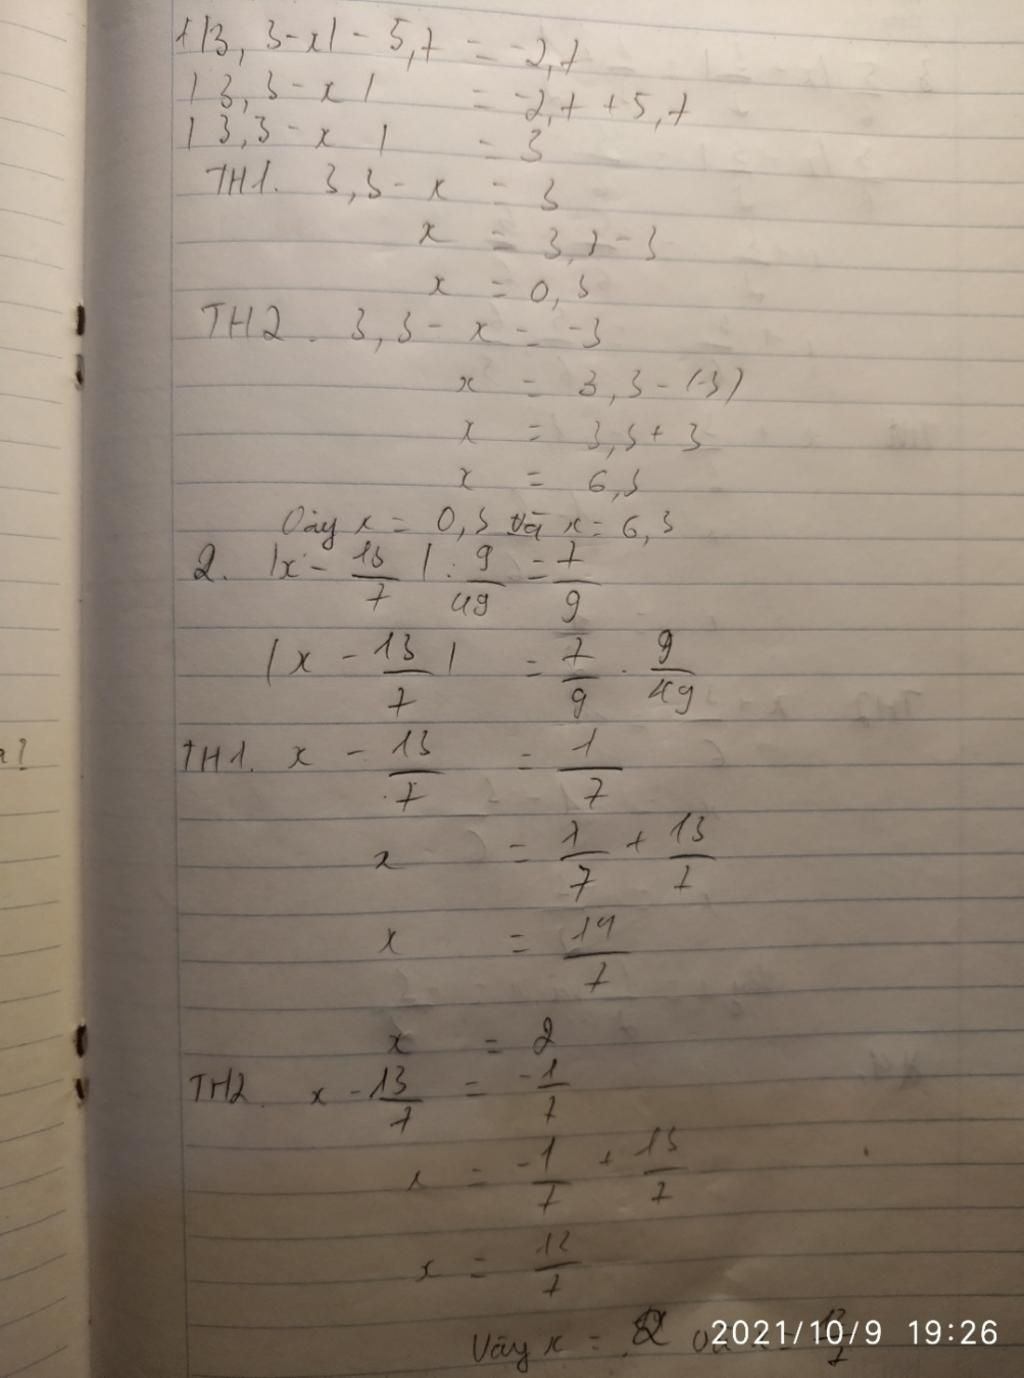 1 |3,3 - x| - 5,7 = -2,7
|3,3 - x| = -2,7 + 5,7
|3,3 - x| = 3
TH1. 3,3 - x = 3
x = 3,3 - 3
x = 0,3
TH2. 3,3 - x = -3
x = 3,3 - (-3)
x = 3,3 + 3
x = 6,3
Vậy x = 0,3 và x = 6,3
2. |x - 13/7| : 9/49 = 7/9
|x - 13/7| = 7/9 . 9/49
TH1. x - 13/7 = 1/7
x = 1/7 + 13/7
x = 14/7
x = 2
TH2. x - 13/7 = -1/7
x = -1/7 + 13/7
x = 12/7
Vậy x = 2
2021/10/9 19:26